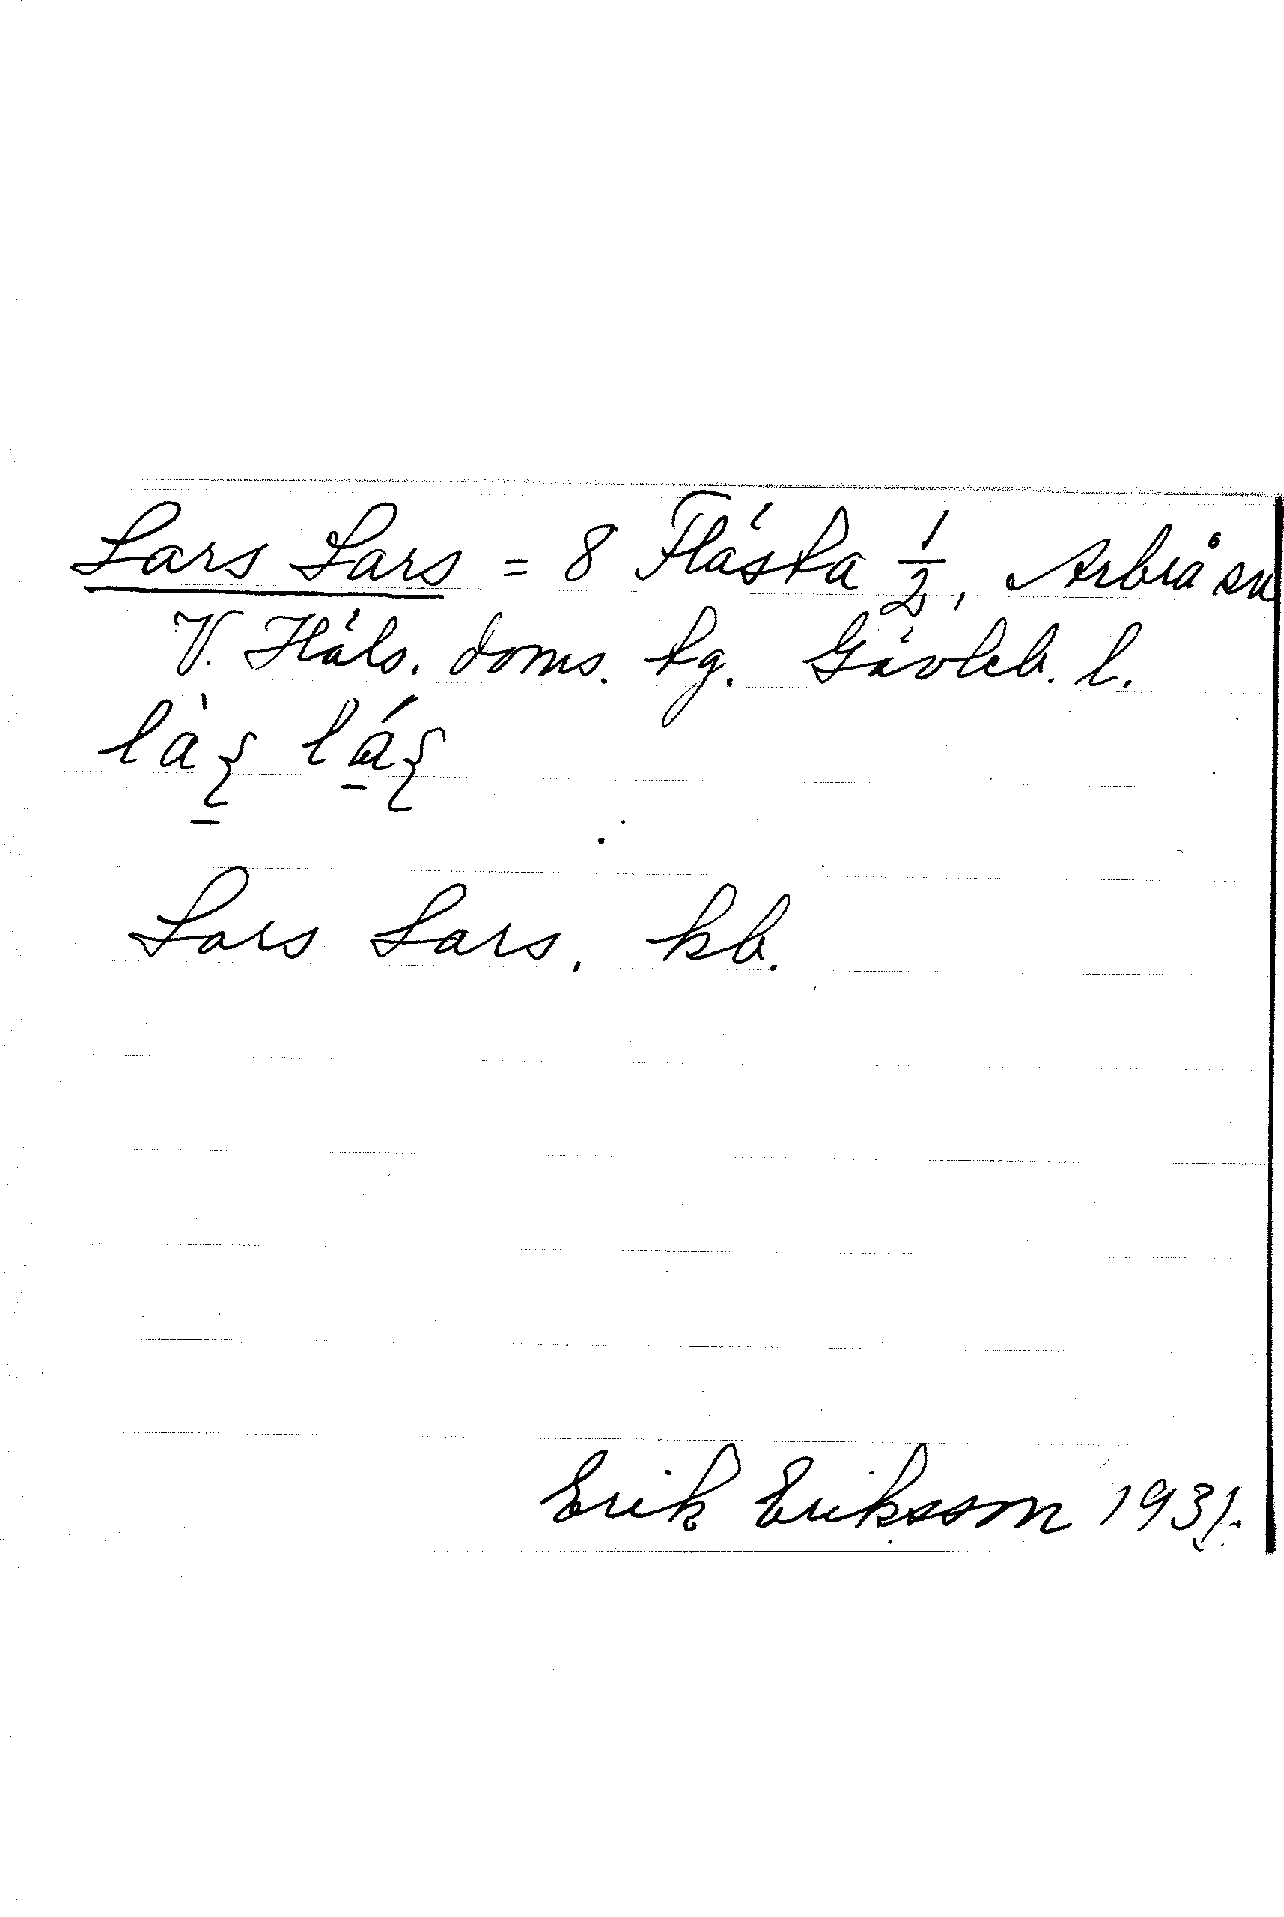 Lars Lars = 8 Fläska 1/2, Arbrå sn
V. Häls. doms. tg. Gävleb. l.
Lars Lars. kb.
Erik Eriksson 1931.